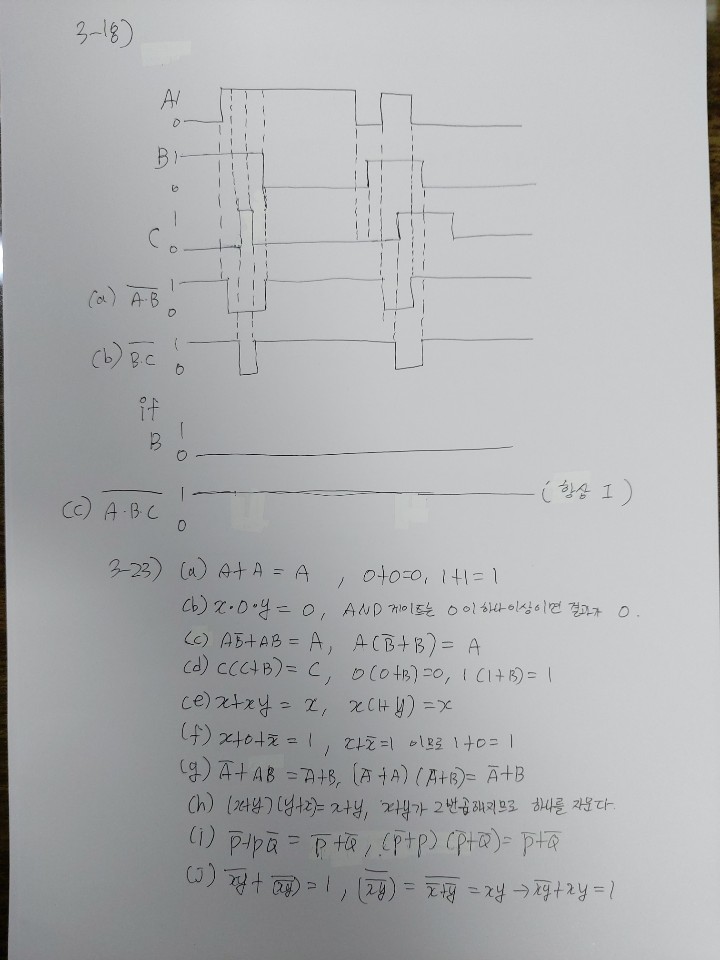 3-18)
A 1
0
B 1
0
1
C 0
(a) A̅·̅B̅ 1
0
(b) B̅·̅C̅ 1
0
if
B 1
0
(c) A̅·̅B̅·̅C̅ 1 (항상 1)
0
3-23) (a) A+A = A , 0+0=0, 1+1=1
(b) x·0·y = 0, AND 게이트는 0이 하나이상이면 결과가 0.
(c) AB̅+AB = A, A(B̅+B) = A
(d) C(C+B) = C, 0(0+B)=0, 1(1+B)=1
(e) x+xy = x, x(1+y)=x
(f) x+0+x̅ = 1, x+x̅=1 이므로 1+0=1
(g) A̅+AB = A̅+B, (A̅+A)(A̅+B)= A̅+B
(h) (x+y)(y+x)=x+y, x+y가 2번곱해지므로 하나를 지운다.
(i) P̅+PQ̅ = P̅+Q̅, (P̅+P)(P̅+Q̅)= P̅+Q̅
(j) x̅y̅ + = 1, = = xy → x̅y̅+xy=1